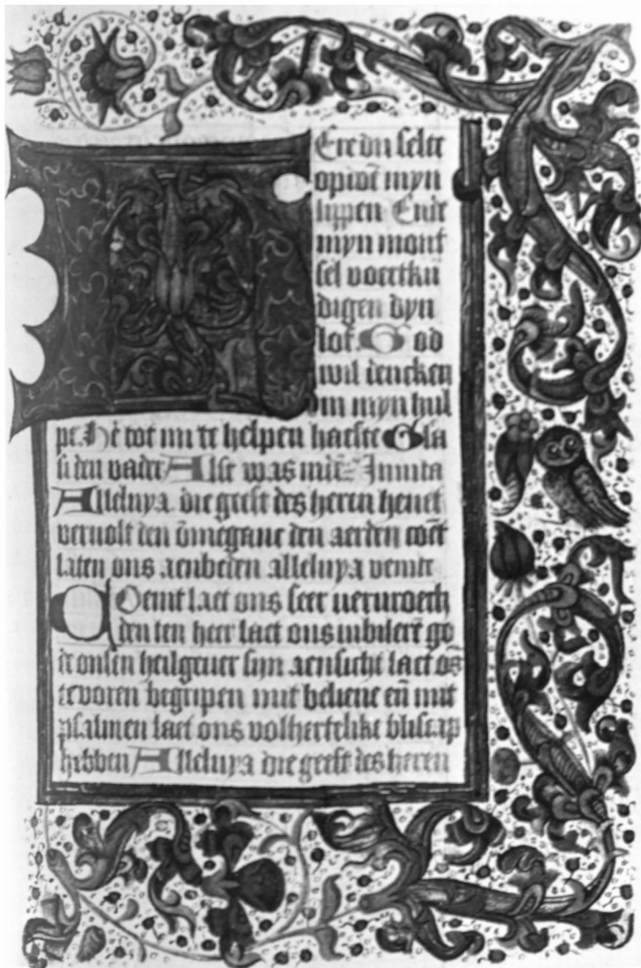 Ere du selte
opwē myn
lippen Ende
myn mont
sel voertkū
digen dyn
lof. God
wil dencken
om myn hul
pe. H̄e tot mi te helpen haeste Glā
si den vader Alst was mit
Alleluya die geest des heren heuet
veruolt den ōmeganc den aerden coēt
laten ons aenbeden alleluya vemte
Coemt laet ons seer veruroech
den den heer laet ons iubilerē go
de onsen heilgeuer sijn aensicht laet ōs
te voren begripen mit beliene eñ mit
psalmen laet ons volhertelike bliscap
hebben Alleluya die geest des heren